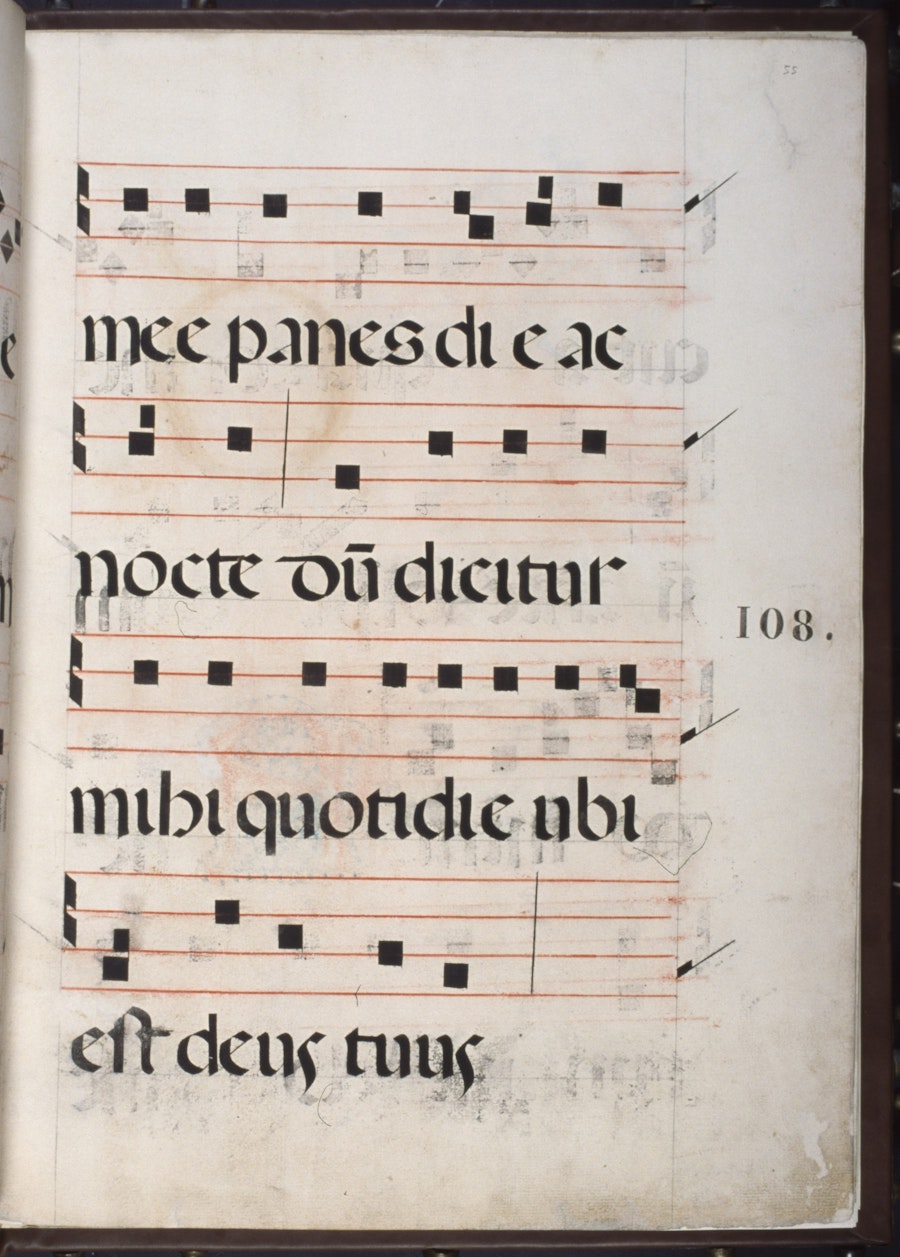 55
mee panes di e ac
nocte dũ dicitur
108.
mihi quotidie ubi
est deus tuus